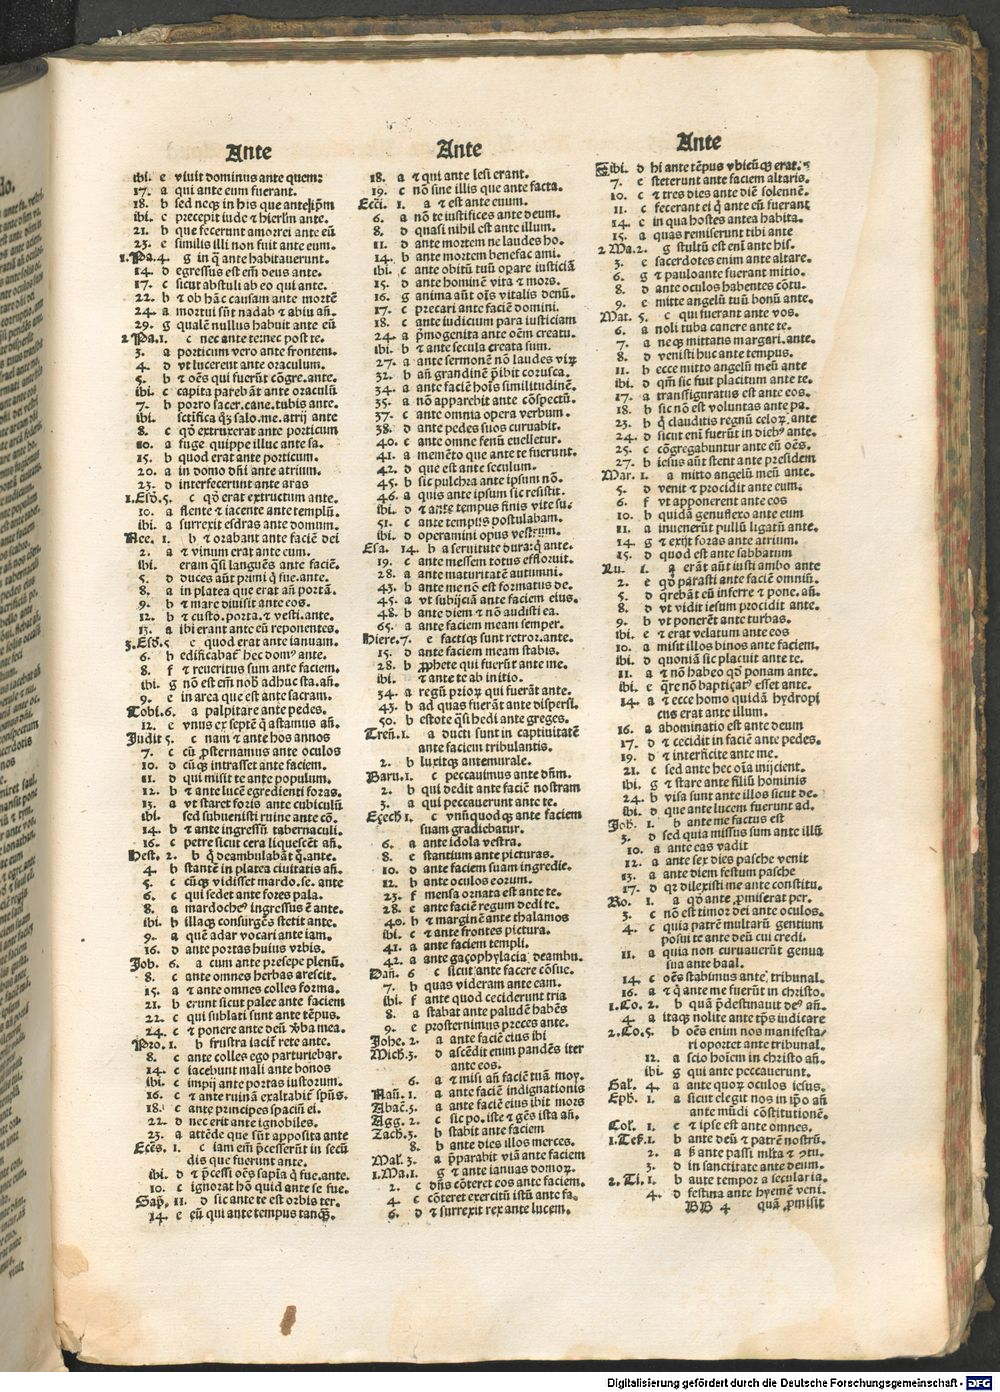 Ante
ibi. e viuit dominus ante quem:
17. a qui ante eum fuerant.
18. b sed neqꝫ in his que ante ip̄m
ibi. c precepit iude ⁊ hierłm ante.
21. b que fecerunt amorrei ante eū
23. e similis illi non fuit ante eum.
1.Pa.4. g in q̄ ante habitauerunt.
14. d egressus est em̄ deus ante.
17. c sicut abstuli ab eo qui ante.
22. b ⁊ ob hāc causam ante mortē
24. a mortui sūt nadab ⁊ abiu añ.
29. g qualē nullus habuit ante eū
2 Pa.1. c nec ante te:nec post te.
3. a porticum vero ante frontem.
4. d vt lucerent ante oraculum.
5. b ⁊ oēs qui fuerūt cōgre.ante.
ibi. c capita parebāt ante oraculū
7. b porro sacer.cane.tubis ante.
ibi. sctifica q̄ꝫ salo.me.atrij ante
8. c qđ extruxerat ante porticum
10. a fuge quippe illuc ante sa.
15. b quod erat ante porticum.
20. a in domo dñi ante atrium.
23. d interfecerunt ante aras
1.Esd.5. c qđ erat extructum ante.
10. a flente ⁊ iacente ante templū.
ibi. a surrexit esdras ante domum.
Nee. 1. b ⁊ orabant ante faciē dei
2. a ⁊ vinum erat ante eum.
ibi. eram q̄si languēs ante faciē.
5. d duces aūt primi q̄ fue.ante.
8. a in platea que erat añ portā.
9. b ⁊ mare diuisit ante eos.
12. b ⁊ custo.porta.⁊ vesti.ante.
13. a ibi erant ante eū reponentes.
3.Esd.5 e quod erat ante ianuam.
6. b edificabat᷑ hec domꝰ ante.
8. f ⁊ reueritus sum ante faciem.
ibi. g nō est em̄ nob̄ adhuc sta.añ.
9. e in area que est ante sacram.
Tobi.6. a palpitare ante pedes.
12. e vnus ex septē q̄ astamus añ.
Judit 5. c nam ⁊ ante hos annos
7. c cū ꝓsternamus ante oculos
10. d cūqꝫ intrasset ante faciem.
11. d qui misit te ante populum.
12. b ⁊ ante lucē egredienti foras.
13. a vt staret foris ante cubiculū
ibi. sed subuenisti ruine ante cō.
14. b ⁊ ante ingressū tabernaculi.
16. c petre sicut cera liquescēt añ.
Hest. 2. b q̄ deambulabāt q̄.ante.
4. b stantē in platea ciuitatis añ.
5. c cūqꝫ vidisset mardo.se.ante
6. c qui sedet ante fores pala.
8. a mardocheꝰ ingressus ē ante.
ibi. b illaqꝫ consurgēs stetit ante.
9. a quē adar vocari ante iam.
16. d ante portas huius vrbis.
Job. 6. a cum ante presepe plenū.
8. c ante omnes herbas arescit.
15. a ⁊ ante omnes colles forma.
21. b erunt sicut palee ante faciem
22. c qui sublati sunt ante tēpus.
24. c ⁊ ponere ante deū v̄ba mea.
Pro.1. b frustra iacit᷑ rete ante.
8. c ante colles ego parturiebar.
14. c iacebunt mali ante bonos
ibi. c impij ante portas iustorum.
16. c ⁊ ante ruinā exaltabit᷑ sp̄us.
18. c ante principes spaciū ei.
22. d nec erit ante ignobiles.
23. a attēde que sūt apposita ante
Eccs. 1. c iam em̄ p̄cesserūt in secū
dis que fuerunt ante.
ibi. d ⁊ p̄cessi oēs sapīa q̄ fue.ante.
10. c ignorat hō quid ante se fue.
Sap̄. 11. d sic ante te est orbis ter.
14. e cū qui ante tempus tanq̄ꝫ.
Ante
18. a ⁊ qui ante lesi erant.
19. c nō sine illis que ante facta.
Ecci. 1. a ⁊ est ante euum.
6. a nō te iustifices ante deum.
8. d quasi nihil est ante illum.
11. d ante mortem ne laudes ho.
14. b ante mortem benefac ami.
ibi. c ante obitū tuū oꝑare iusticiā
15. d ante hominē vita ⁊ mors.
16. g anima aūt oīs vitalis denū.
17. c precari ante faciē domini.
18. c ante iudicium para iusticiam
24. a p̄mogenita ante oēm creatu.
ibi. b ⁊ ante secula creata sum.
27. a ante sermonē nō laudes viꝝ
32. b añ grandinē p̄ibit corusca.
34. a ante faciē hoīs similitudinē.
35. a nō apparebit ante cōspectū.
37. c ante omnia opera verbum.
38. d ante pedes suos curuabit.
40. c ante omne fenū euelletur.
41. a memēto que ante te fuerunt.
42. d que est ante seculum.
45. b sic pulchra ante ipsum nō.
46. a quis ante ipsum sic resistit.
ibi. d ⁊ ante tempus finis vite su.
51. c ante tempus postulabam.
ibi. d operamini opus vestrum.
Esa. 14. b a seruitute dura:q̄ ante.
19. c ante messem totus effloruit.
28. a ante maturitatē autumni.
43. b ante me nō est formatus de.
45. a vt subijciā ante faciem eius.
48. b ante diem ⁊ nō audisti ea.
65. a ante faciem meam semper.
Hiere.7. e factiqꝫ sunt retror.ante.
15. d ante faciem meam stabis.
28. b ꝓphete qui fuerūt ante me.
ibi ⁊ ante te ab initio.
34. a regū prioꝝ qui fuerāt ante.
43. b ad quas fuerāt dispersi.
50. b estote q̄si hedi ante greges.
Treñ.1. a ducti sunt in captiuitatē
ante faciem tribulantis.
2. b luxitqꝫ antemurale.
Baru.1. c peccauimus ante dñm.
2. b qui dedit ante faciē nostram
3. a qui peccauerunt ante te.
Ezech 1. c vnūquodqꝫ ante faciem
suam gradiebatur.
6. a ante idola vestra.
8. e stantium ante picturas.
10. d ante faciem suam ingredie.
12. b ante oculos eorum.
23. f mensa ornata est ante te.
28. e ante faciē regum dedi te.
40. b ⁊ marginē ante thalamos
ibi. c ⁊ ante frontes pictura.
41. a ante faciem templi.
42. a ante gazophylacia deambu.
Dañ. 6 c sicut ante facere cōsue.
7. b quas videram ante eam.
ibi. f ante quod ceciderunt tria
8. a stabat ante paludē habēs
9. e prosternimus preces ante.
Johe. 2. a ante faciē eius ibi
Mich.3. d ascēdit enim pandēs iter
ante eos.
6. a ⁊ misi añ faciē tuā moy.
Nañ. 1. a ante faciē indignationis
Abac̄.3. a ante faciē eius ibit mors
Agg. 2. c sic po.iste ⁊ gēs ista añ.
Zach.3. b stabit ante faciem
8. b ante dies illos merces.
Mal̄. 3. a p̄parabit viā ante faciem
1.Ma.1. g ⁊ ante ianuas domoꝝ.
2. c dñs cōteret eos ante faciem.
4. c cōteret exercitū istū ante fa.
6. d ⁊ surrexit rex ante lucem.
Ante
Tibi. d hi ante tēpus vbicūqꝫ erat.
7. e steterunt ante faciem altaris.
10. c ⁊ tres dies ante diē solennē.
11. c fecerant ei q̄ ante eū fuerant
14. c in qua hostes antea habita.
15. a quas remiserunt tibi ante
2 Ma.2. g stultū est enī ante his.
3. c sacerdotes enim ante altare.
6. g ⁊ pauloante fuerant mitio.
8. d ante oculos habentes cōtu.
9. e mitte angelū tuū bonū ante.
Mat. 5. c qui fuerant ante vos.
6. a noli tuba canere ante te.
7. a neqꝫ mittatis margari.ante.
8. d venisti huc ante tempus.
11. b ecce mitto angelū meū ante
ibi. d qm̄ sic fuit placitum ante te.
17. a transfiguratus est ante eos.
18. b sic nō est voluntas ante pa.
23. b q̄ clauditis regnū celoꝝ ante
24. d sicut enī fuerūt in diebꝰ ante.
25. c cōgregabuntur ante eū oēs.
27. b iesus aūt stetit ante presidem
Mar. 1. a mitto angelū meū ante.
5. d venit ⁊ procidit ante eum.
6. f vt apponerent ante eos
10. b quidā genuflexo ante eum
11. a inuenerūt pullū ligatū ante.
14. g ⁊ exijt foras ante atrium.
15. d quod est ante sabbatum
Lu. 1. a erāt aūt iusti ambo ante
2. e qđ parasti ante faciē omniū.
5. d q̄rebāt eū inferre ⁊ pone.añ.
8. d vt vidit iesum procidit ante.
9. b vt ponerēt ante turbas.
ibi. e ⁊ erat velatum ante eos
10. a misit illos binos ante faciem.
ibi. d quoniā sic placuit ante te.
11. a ⁊ nō habeo qđ ponam ante.
ibi. e q̄re nō baptizatꝰ esset ante.
14. a ⁊ ecce homo quidā hydropi
cus erat ante illum.
16. a abominatio est ante deum
17. d ⁊ cecidit in faciē ante pedes.
19. d ⁊ interficite ante me.
21. c sed ante hec oīa inijcient.
ibi. g ⁊ stare ante filiū hominis
24. b visa sunt ante illos sicut de.
ibi. d que ante lucem fuerunt ad.
Joh. 1. b ante me factus est
3. d sed quia missus sum ante illū
10. a ante eas vadit
12. a ante sex dies pasche venit
13. a ante diem festum pasche
17. d qꝛ dilexisti me ante constitu.
Ro. 1. a qđ ante ꝓmiserat per.
3. c nō est timor dei ante oculos.
4. c quia patrē multarū gentium
posui te ante deū cui credi.
11. a quia non curuauerūt genua
sua ante baal.
14. c oēs stabimus ante tribunal.
16. a ⁊ q̄ ante me fuerūt in christo.
1.Co. 2. b quā p̄destinauit deꝰ añ.
4. a itaqꝫ nolite ante tp̄s iudicare
2.Co.5. b oēs enim nos manifesta/
ri oportet ante tribunal.
12. a scio hoīem in christo añ.
ibi. g qui ante peccauerunt.
Gal. 4. a ante quoꝝ oculos iesus.
Eph. 1. a sicut elegit nos in ip̄o añ
ante mūdi cōstitutionē.
Col. 1. c ⁊ ipse est ante omnes.
1.Tes̄.1. b ante deū ⁊ patrē nostrū.
2. a ß ante passi ml̄ta ⁊ ꝯtu.
3. d in sanctitate ante deum.
2.Ti.1. b aute tempora secularia.
4. d festina ante hyemē veni.
BB 4 quā ꝓmisit
Digitalisierung gefördert durch die Deutsche Forschungsgemeinschaft - DFG